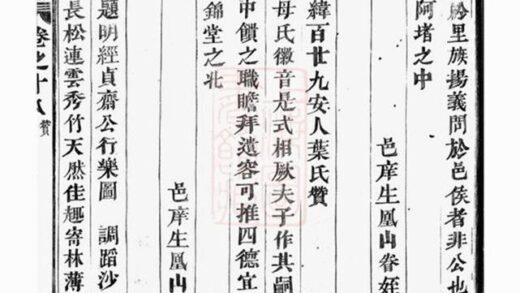 於里族揚義問於邑侯者非公也
阿堵之中
邑庠生凰山眷姪
緯百廿九安人葉氏贊
母氏徽音是式相厥夫子作其嗣
中饋之職瞻拜遺容可推四德宜
錦堂之北
邑庠生凰山
題明經貞齋公行樂圖 調蹈沙
長松連雲秀竹天然佳趣寄林薄
卷之十八 贊